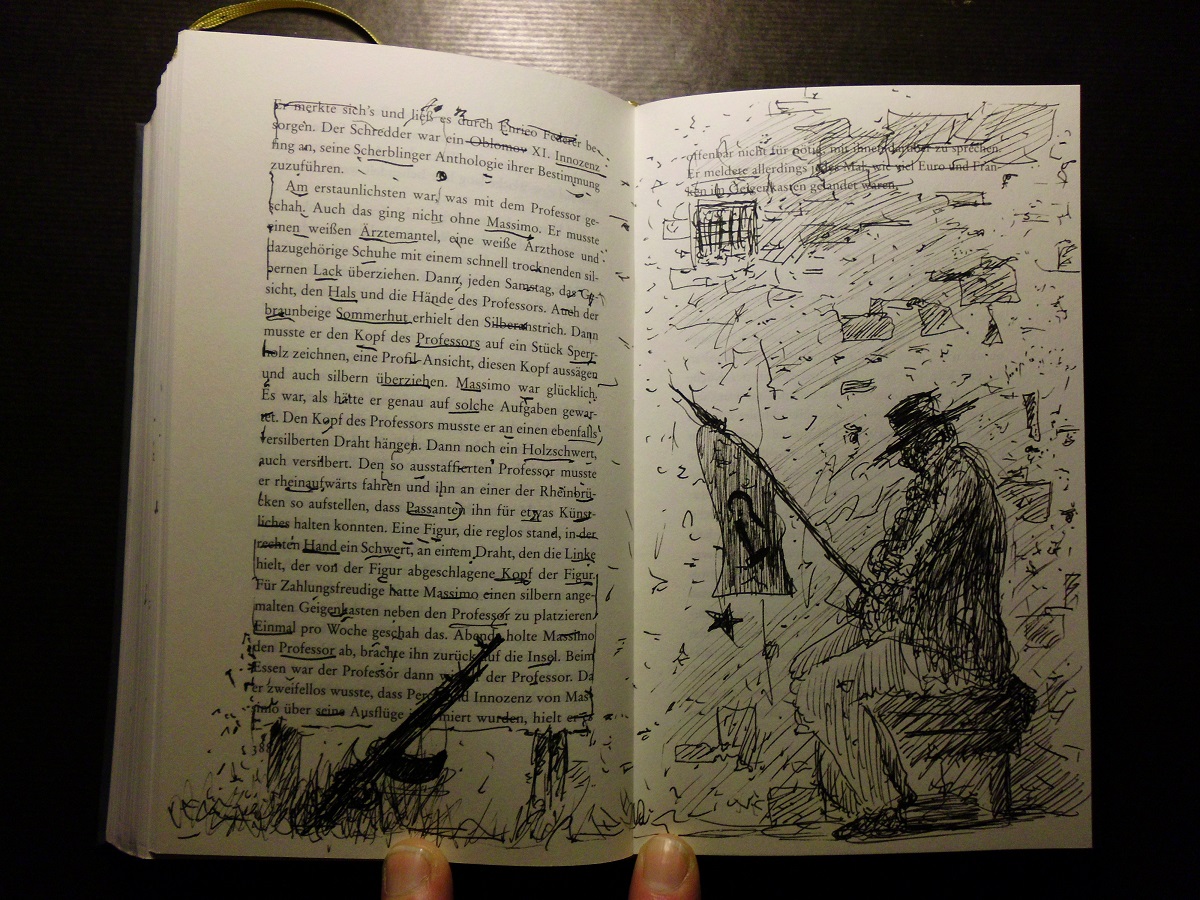 Er merkte sich's und ließ es durch Enrico Federer be-
sorgen. Der Schredder war ein Oblomow XI. Innozenz
fing an, seine Scherblinger Anthologie ihrer Bestimmung
zuzuführen.
Am erstaunlichsten war, was mit dem Professor ge-
schah. Auch das ging nicht ohne Massimo. Er musste
einen weißen Ärztemantel, eine weiße Arzthose und
dazugehörige Schuhe mit einem schnell trocknenden sil-
bernen Lack überziehen. Dann, jeden Samstag, das Ge-
sicht, den Hals und die Hände des Professors. Auch der
braunbeige Sommerhut erhielt den Silberanstrich. Dann
musste er den Kopf des Professors auf ein Stück Sperr-
holz zeichnen, eine Profil-Ansicht, diesen Kopf aussägen
und auch silbern überziehen. Massimo war glücklich.
Es war, als hätte er genau auf solche Aufgaben gewar-
tet. Den Kopf des Professors musste er an einen ebenfalls
versilberten Draht hängen. Dann noch ein Holzschwert,
auch versilbert. Den so ausstaffierten Professor musste
er rheinaufwärts fahren und ihn an einer der Rheinbrü-
cken so aufstellen, dass Passanten ihn für etwas Künst-
liches halten konnten. Eine Figur, die reglos stand, in der
rechten Hand ein Schwert, an einem Draht, den die Linke
hielt, der von der Figur abgeschlagene Kopf der Figur.
Für Zahlungsfreudige hatte Massimo einen silbern ange-
malten Geigenkasten neben den Professor zu platzieren.
Einmal pro Woche geschah das. Abends holte Massimo
den Professor ab, brachte ihn zurück auf die Insel. Beim
Essen war der Professor dann wieder der Professor. Da
er zweifellos wusste, dass Percy und Innozenz von Mas-
simo über seine Ausflüge informiert wurden, hielt er es
388
offenbar nicht für nötig, mit ihnen darüber zu sprechen.
Er meldete allerdings jedes Mal, wie viel Euro und Fran-
ken im Geigenkasten gelandet waren.